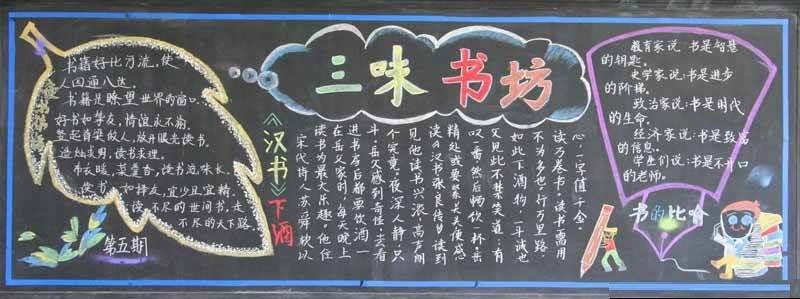 三味书坊
书籍好比河流,使
人四通八达。
书籍是瞭望世界的窗口。
好书如挚友,情谊永不渝。
竖起脊梁做人,放开眼光读书。
造烛求明,读书求理。
布衣暖,菜羹香,读书滋味长。
读书如择友,宜少且宜精。
读不尽的世间书,走
不尽的天下路。
第五期
《汉书》下酒
宋代诗人苏舜钦以
读书为最大乐趣。他住
在岳父家时,每天晚上
进书房后都要饮酒一
斗。岳父感到奇怪,去看
个究竟。夜深人静,只
见他读书兴浓,高声朗
读《汉书张良传》读到
精处或要紧关头便感
叹一番,然后畅饮一杯。岳
父见此不禁笑道:有
如此下酒物,一斗诚
不为多也。行万里路,
读万卷书。读书需用
心,一字值千金。
教育家说:书是智慧
的钥匙。
史学家说:书是进步
的阶梯。
政治家说:书是时代
的生命。
经济家说:书是致富
的信息。
学生们说:书是不开口
的老师。
书的比喻